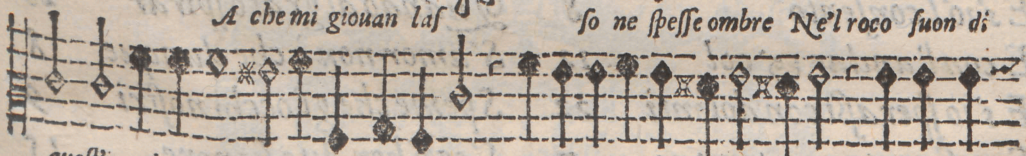 A che mi giouan las so ne ſpeſſe ombre Ne'l roco ſuon di